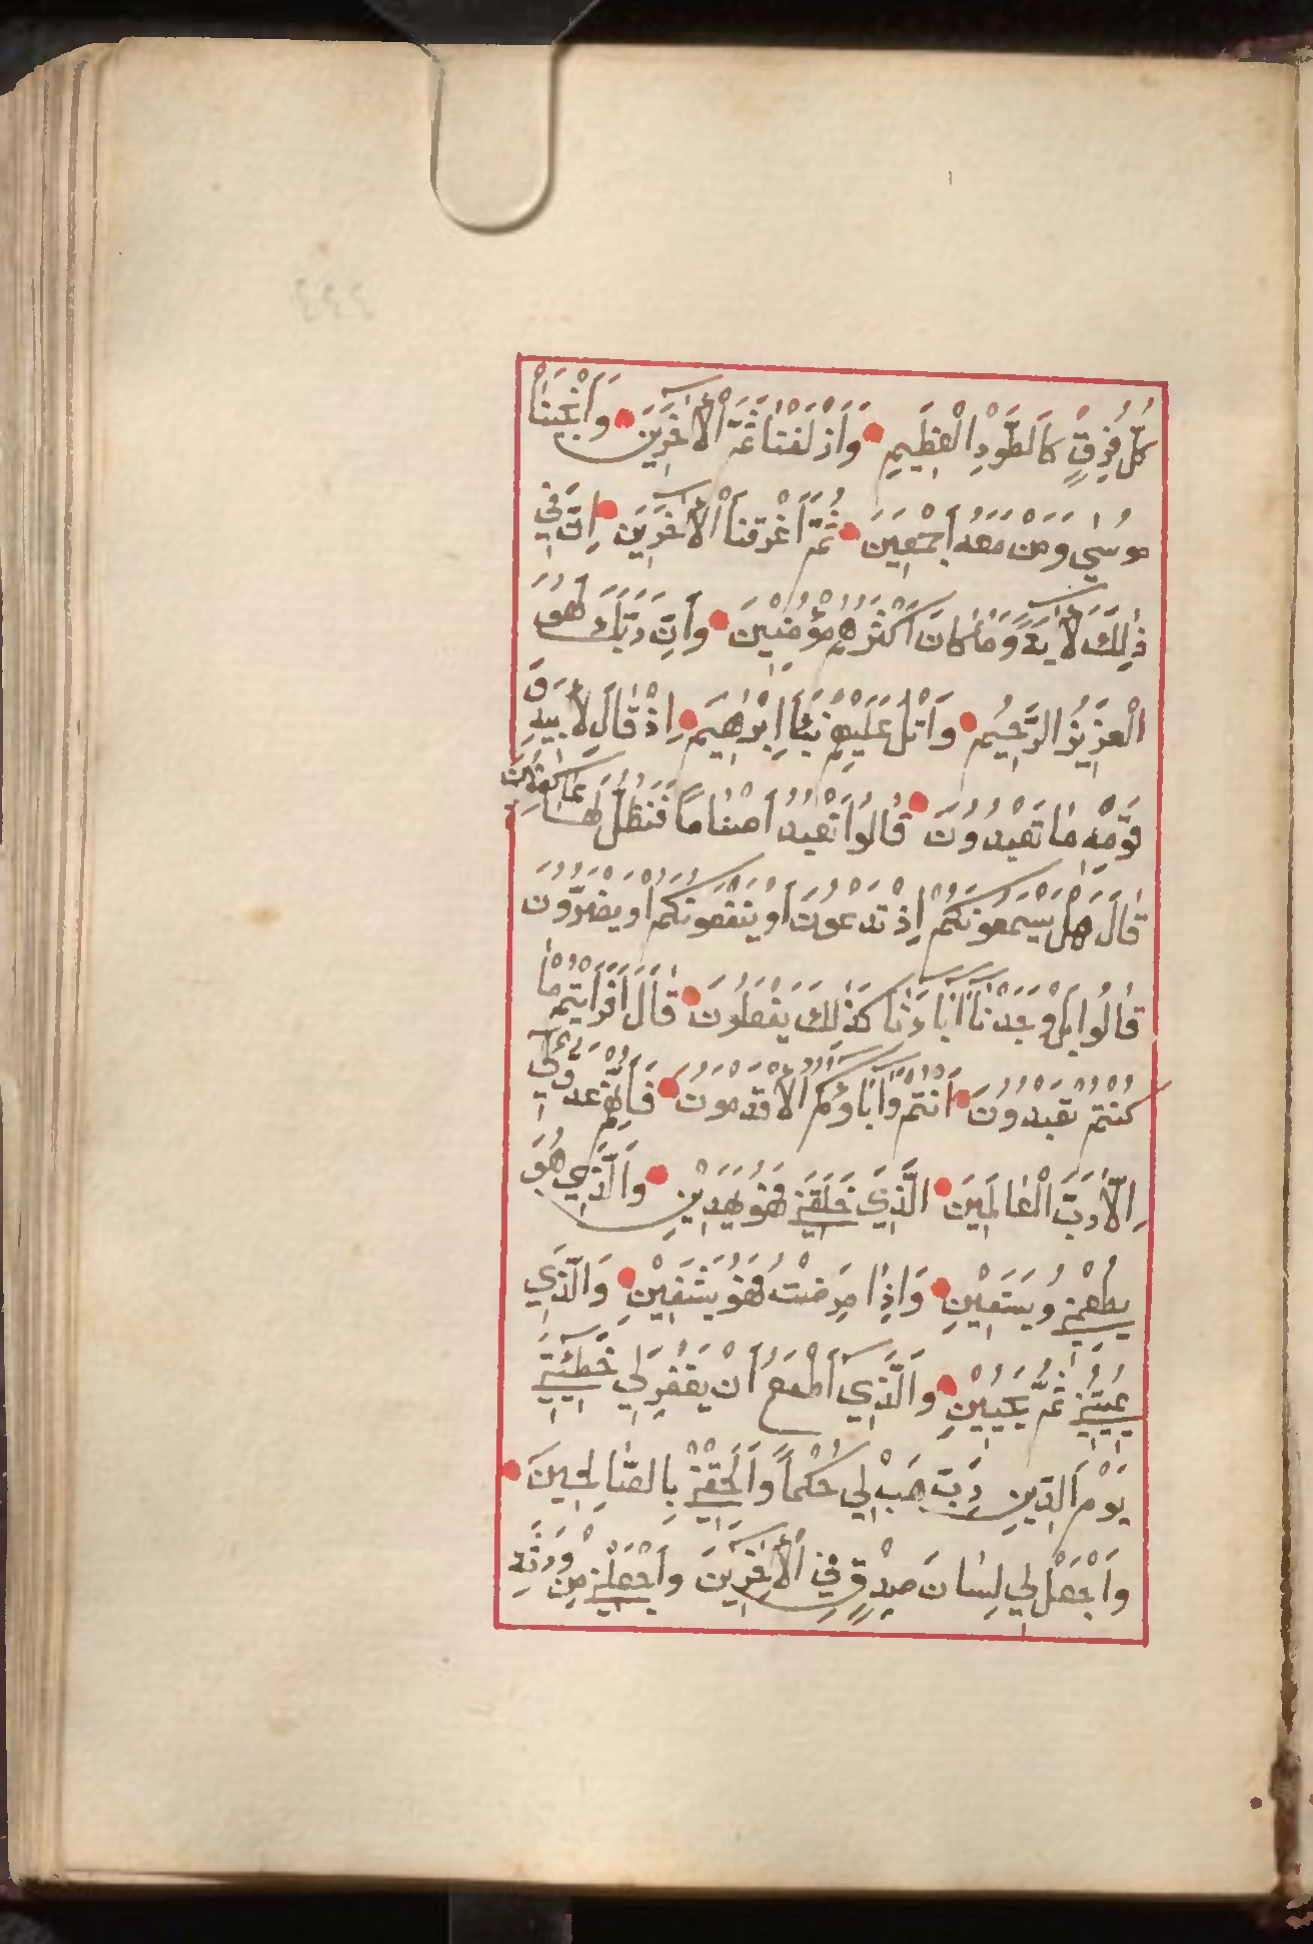 كُلُّ فِرْقٍ كَالطَّوْدِ الْعَظِيمِ وَاَزْلَفْنَا ثَمَّ الْاٰخَرِينَ وَاَنْجَيْنَا
مُوسٰي وَمَنْ مَعَهُ اَجْمَعِينَ ثُمَّ اَغْرَقْنَا الْاٰخَرِينَ اِنَّ فِي
ذٰلِكَ لَاٰيَةً وَمَا كَانَ اَكْثَرُهُمْ مُؤْمِنِينَ وَاِنَّ رَبَّكَ لَهُوَ
الْعَزِيزُ الرَّحِيمُ وَاتْلُ عَلَيْهِمْ نَبَاَ اِبْرٰهِيمَ اِذْ قَالَ لِاَبِيهِ وَ
قَوْمِهِ مَا تَعْبُدُونَ قَالُوا نَعْبُدُ اَصْنَامًا فَنَظَلُّ لَهَا عَاكِفِينَ
قَالَ هَلْ يَسْمَعُونَكُمْ اِذْ تَدْعُونَ اَوْ يَنْفَعُونَكُمْ اَوْ يَضُرُّونَ
قَالُوا بَلْ وَجَدْنَا اٰبَاءَنَا كَذٰلِكَ يَفْعَلُونَ قَالَ اَفَرَاَيْتُمْ مَا
كُنْتُمْ تَعْبُدُونَ اَنْتُمْ وَاٰبَاؤُكُمُ الْاَقْدَمُونَ فَاِنَّهُمْ عَدُوٌّ لِي
اِلَّا رَبَّ الْعَالَمِينَ الَّذِي خَلَقَنِي فَهُوَ يَهْدِينِ وَالَّذِي هُوَ
يُطْعِمُنِي وَيَسْقِينِ وَاِذَا مَرِضْتُ فَهُوَ يَشْفِينِ وَالَّذِي
يُمِيتُنِي ثُمَّ يُحْيِينِ وَالَّذِي اَطْمَعُ اَنْ يَغْفِرَ لِي خَطِيئَتِي
يَوْمَ الدِّينِ رَبِّ هَبْ لِي حُكْمًا وَاَلْحِقْنِي بِالصَّالِحِينَ
وَاجْعَلْ لِي لِسَانَ صِدْقٍ فِي الْاٰخِرِينَ وَاجْعَلْنِي مِنْ وَرَثَةِ